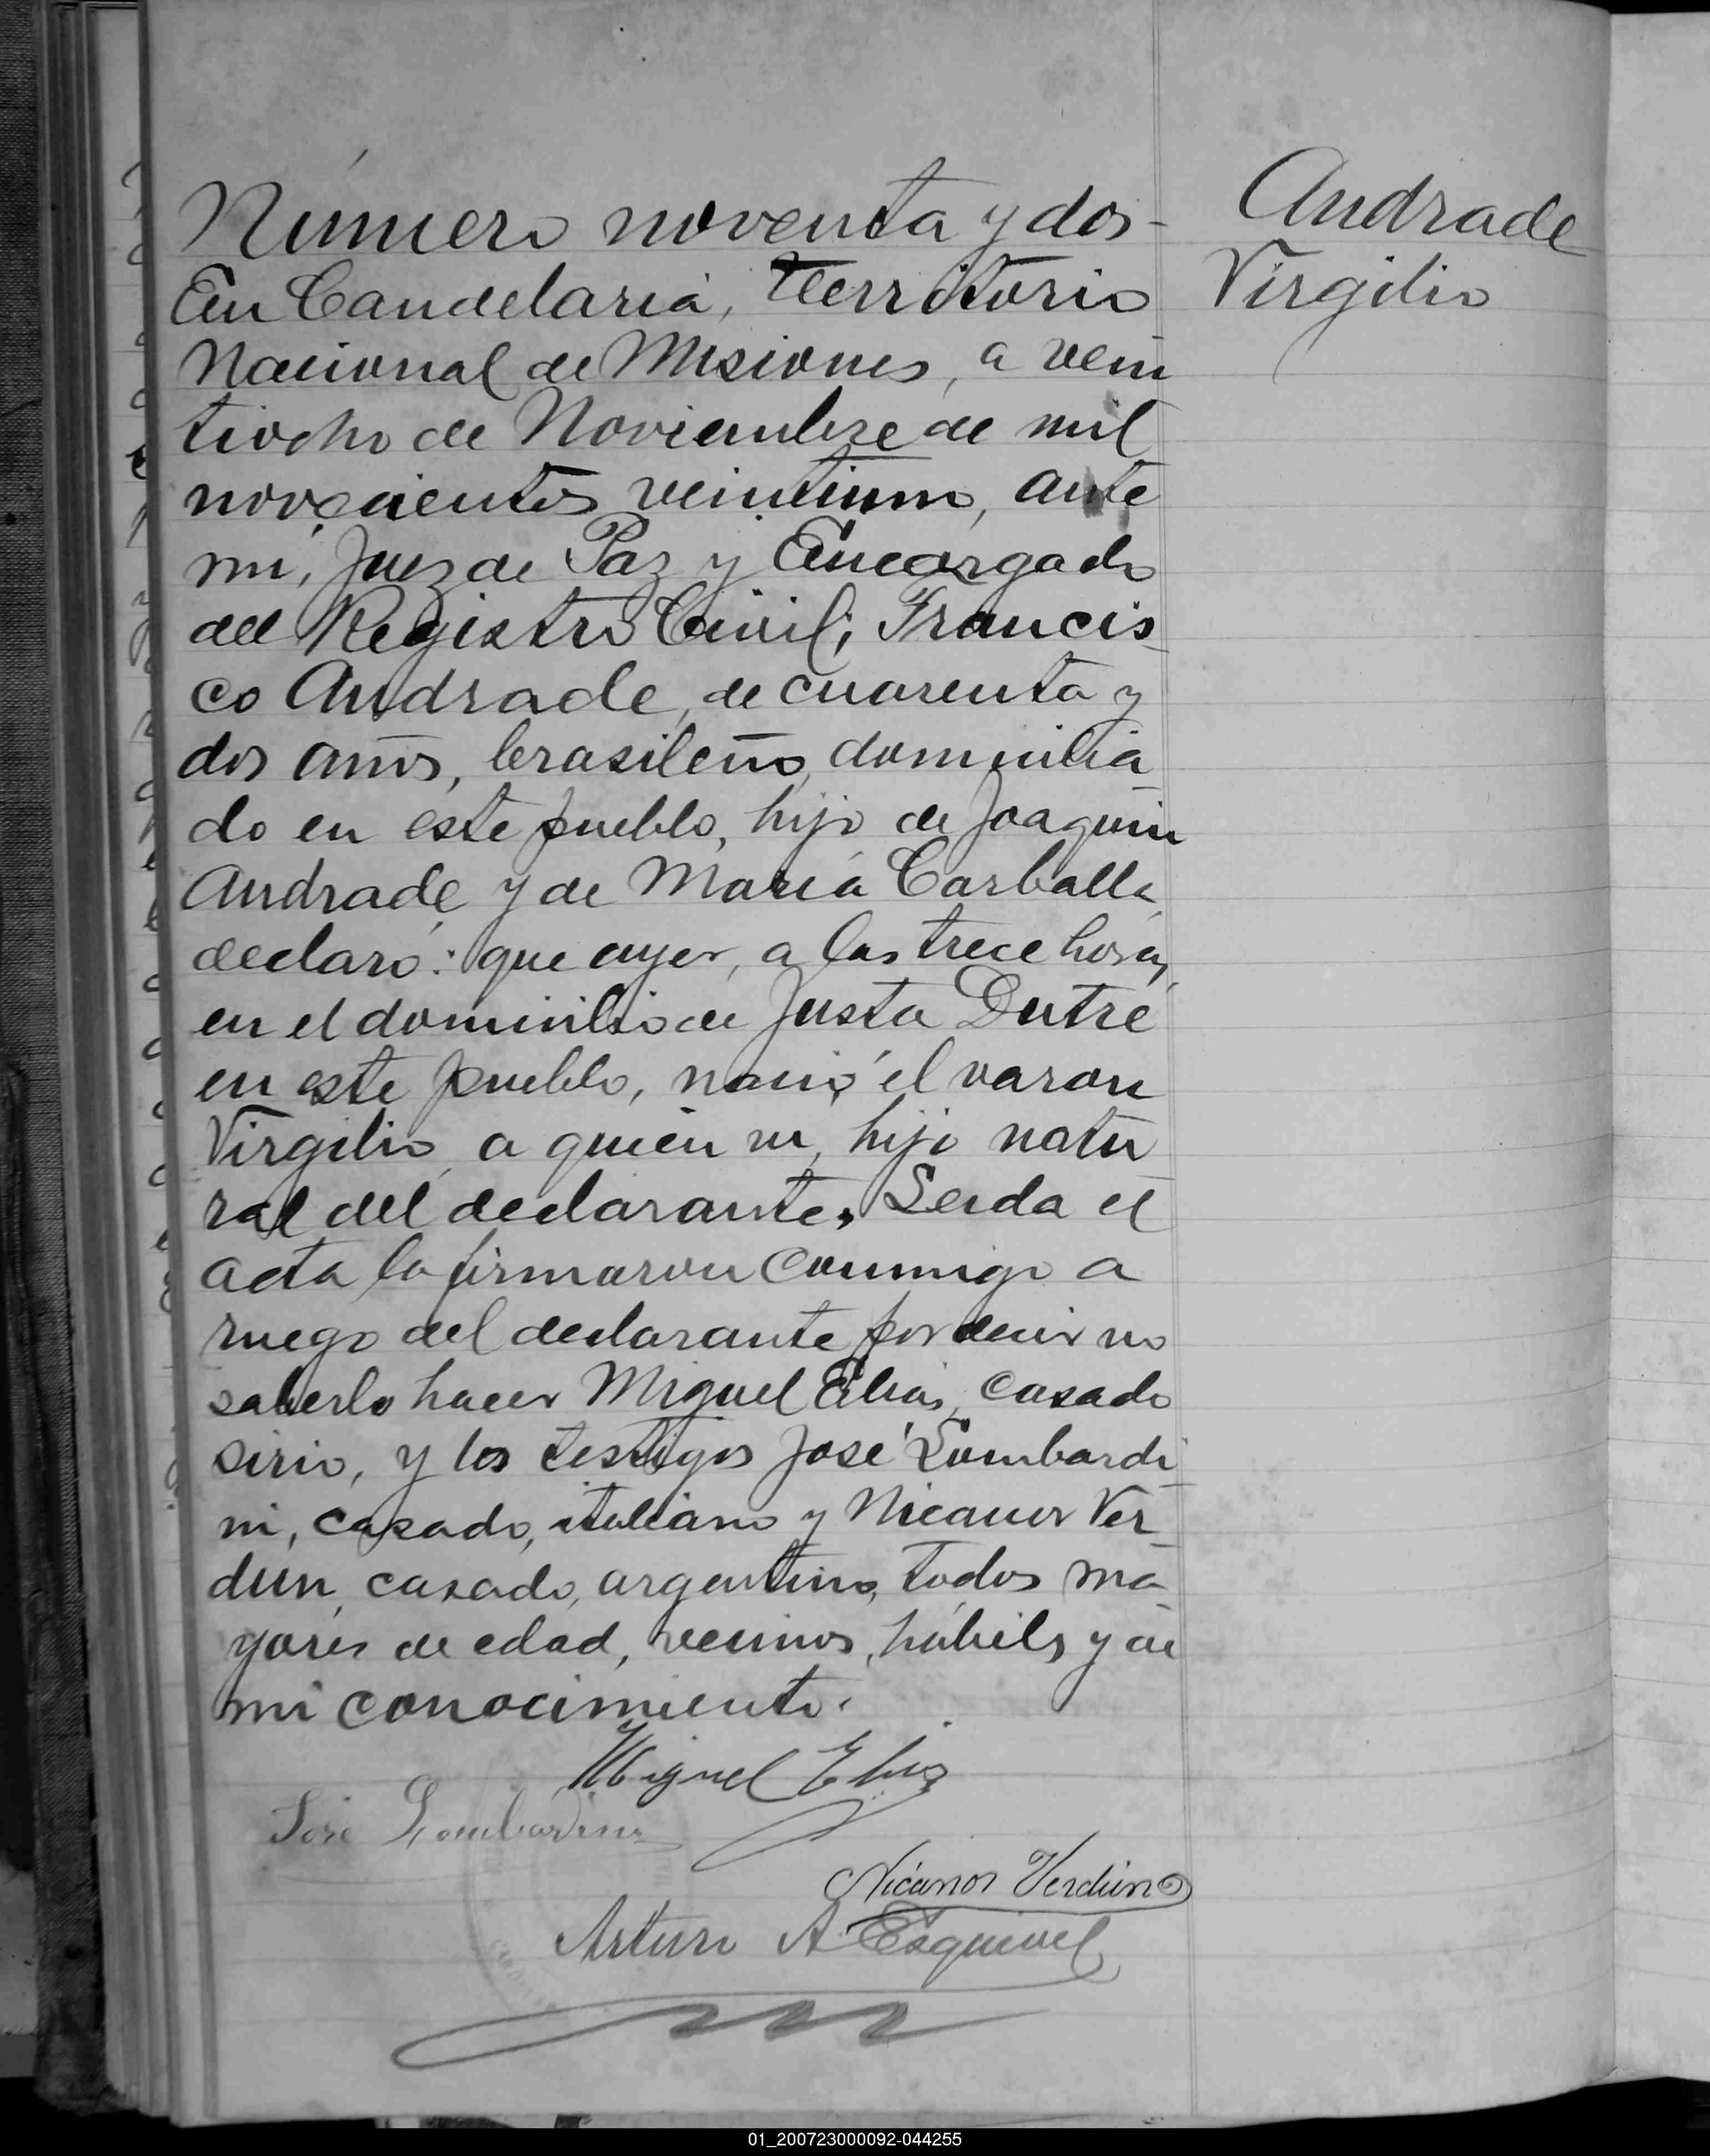 Número noventa y dos-
En Candelaria, Territorio
Nacional de Misiones, a vein
tiocho de Noviembre de mil
novecientos veintiuno, ante
mi, Juez de Paz y Encargado
del Registro Civil; Francis-
co Andrade, de cuarenta y
dos años, brasileño, domicilia-
do en este pueblo, hijo de Joaquin
Andrade y de Maria Carballa,
declaró: que ayer, a las trece horas,
en el domicilio de Justa Dutré
en este pueblo, nació el varon
Virgilio, a quien vi, hijo natu-
ral del declarante. Leida el
acta la firmaron conmigo a
ruego del declarante por decir no
saberlo hacer Miguel Elias, casado
sirio, y los testigos José Lombardi-
ni, casado, italiano y Nicanor Ver-
dun, casado, argentino, todos ma-
yores de edad, vecinos, hábiles y de
mi conocimiento.
Miguel Elias
José Lombardini
Nicanor Verdun
Arturo A Esquivel
Andrade
Virgilio
01_200723000092-044255